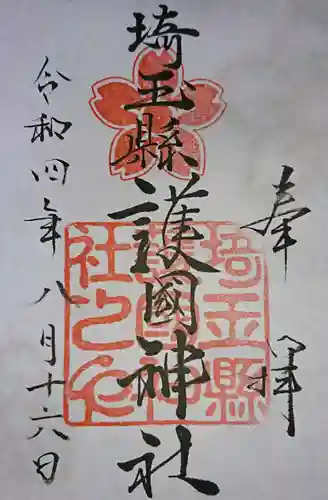 奉拝
埼玉縣護國神社
令和四年八月十六日
埼玉縣
護國神
社之印